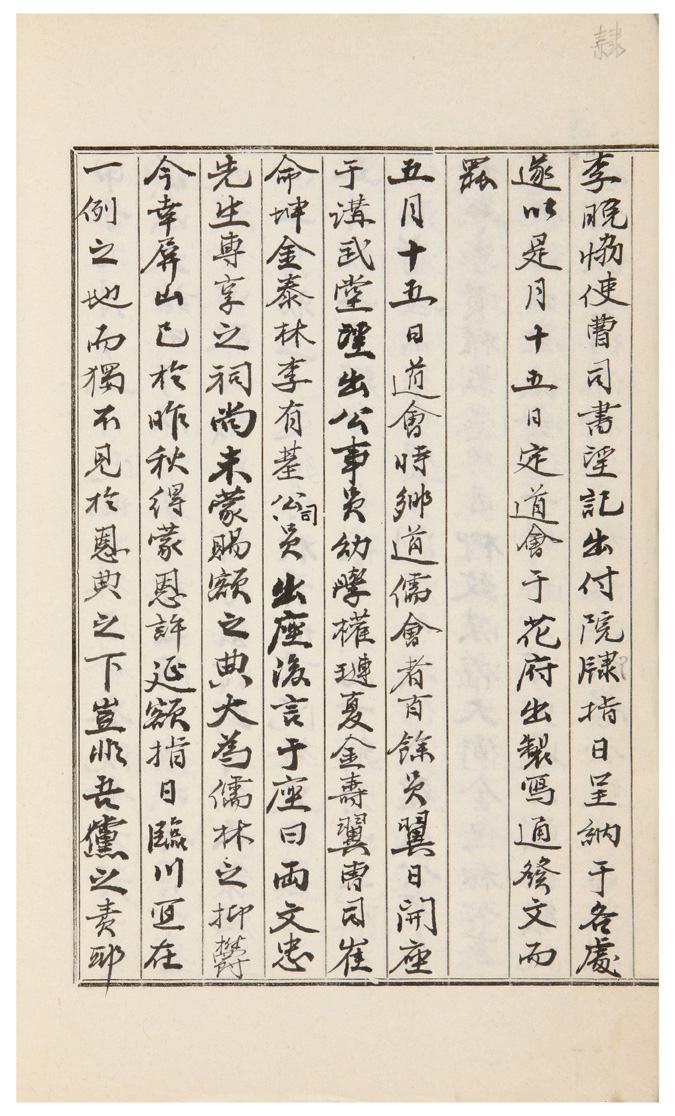 隷
李晩恊使曹司書望記出付院隷指日呈納于各處
遂以是月十五日定道會于花府出製寫通發文而
罷
五月十五日道會時鄉道儒會者百餘員翼日開座
于講武堂望出公事員幼學權璉夏金壽翼曹司崔
命坤金泰林李有基公司員出座後言于座曰兩文忠
先生專享之祠尚未蒙賜額之典大爲儒林之抑欝
今幸屛山已於昨秋得蒙恩許延額指日臨川亘在
一例之地而獨不見於恩典之下豈非吾儻之責耶